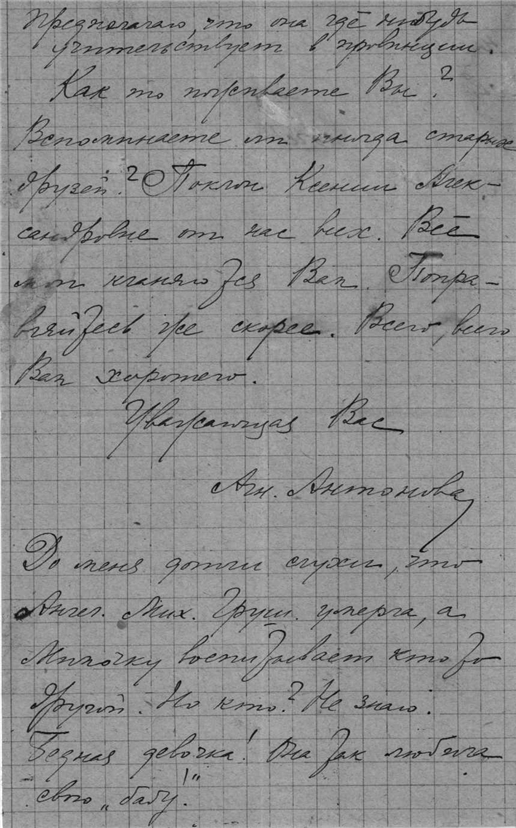 Предполагаю, что она где нибудь
учительствует в провинции.
Как то поживаете Вы?
Вспоминаете ли иногда старых
друзей? Поклон Ксении Алек-
сандровне от нас всех. Все
мои кланяются Вам. Попра-
вляйтесь же скорее. Всего, всего
Вам хорошего.
Уважающая Вас
Ан. Антонова
До меня дошли слухи, что
Ангел. Мих. Груш. умерла, а
Мимочку воспитывает кто то
другой. Но кто? Не знаю.
Бедная девочка! Она так любила
свою „бабу!"